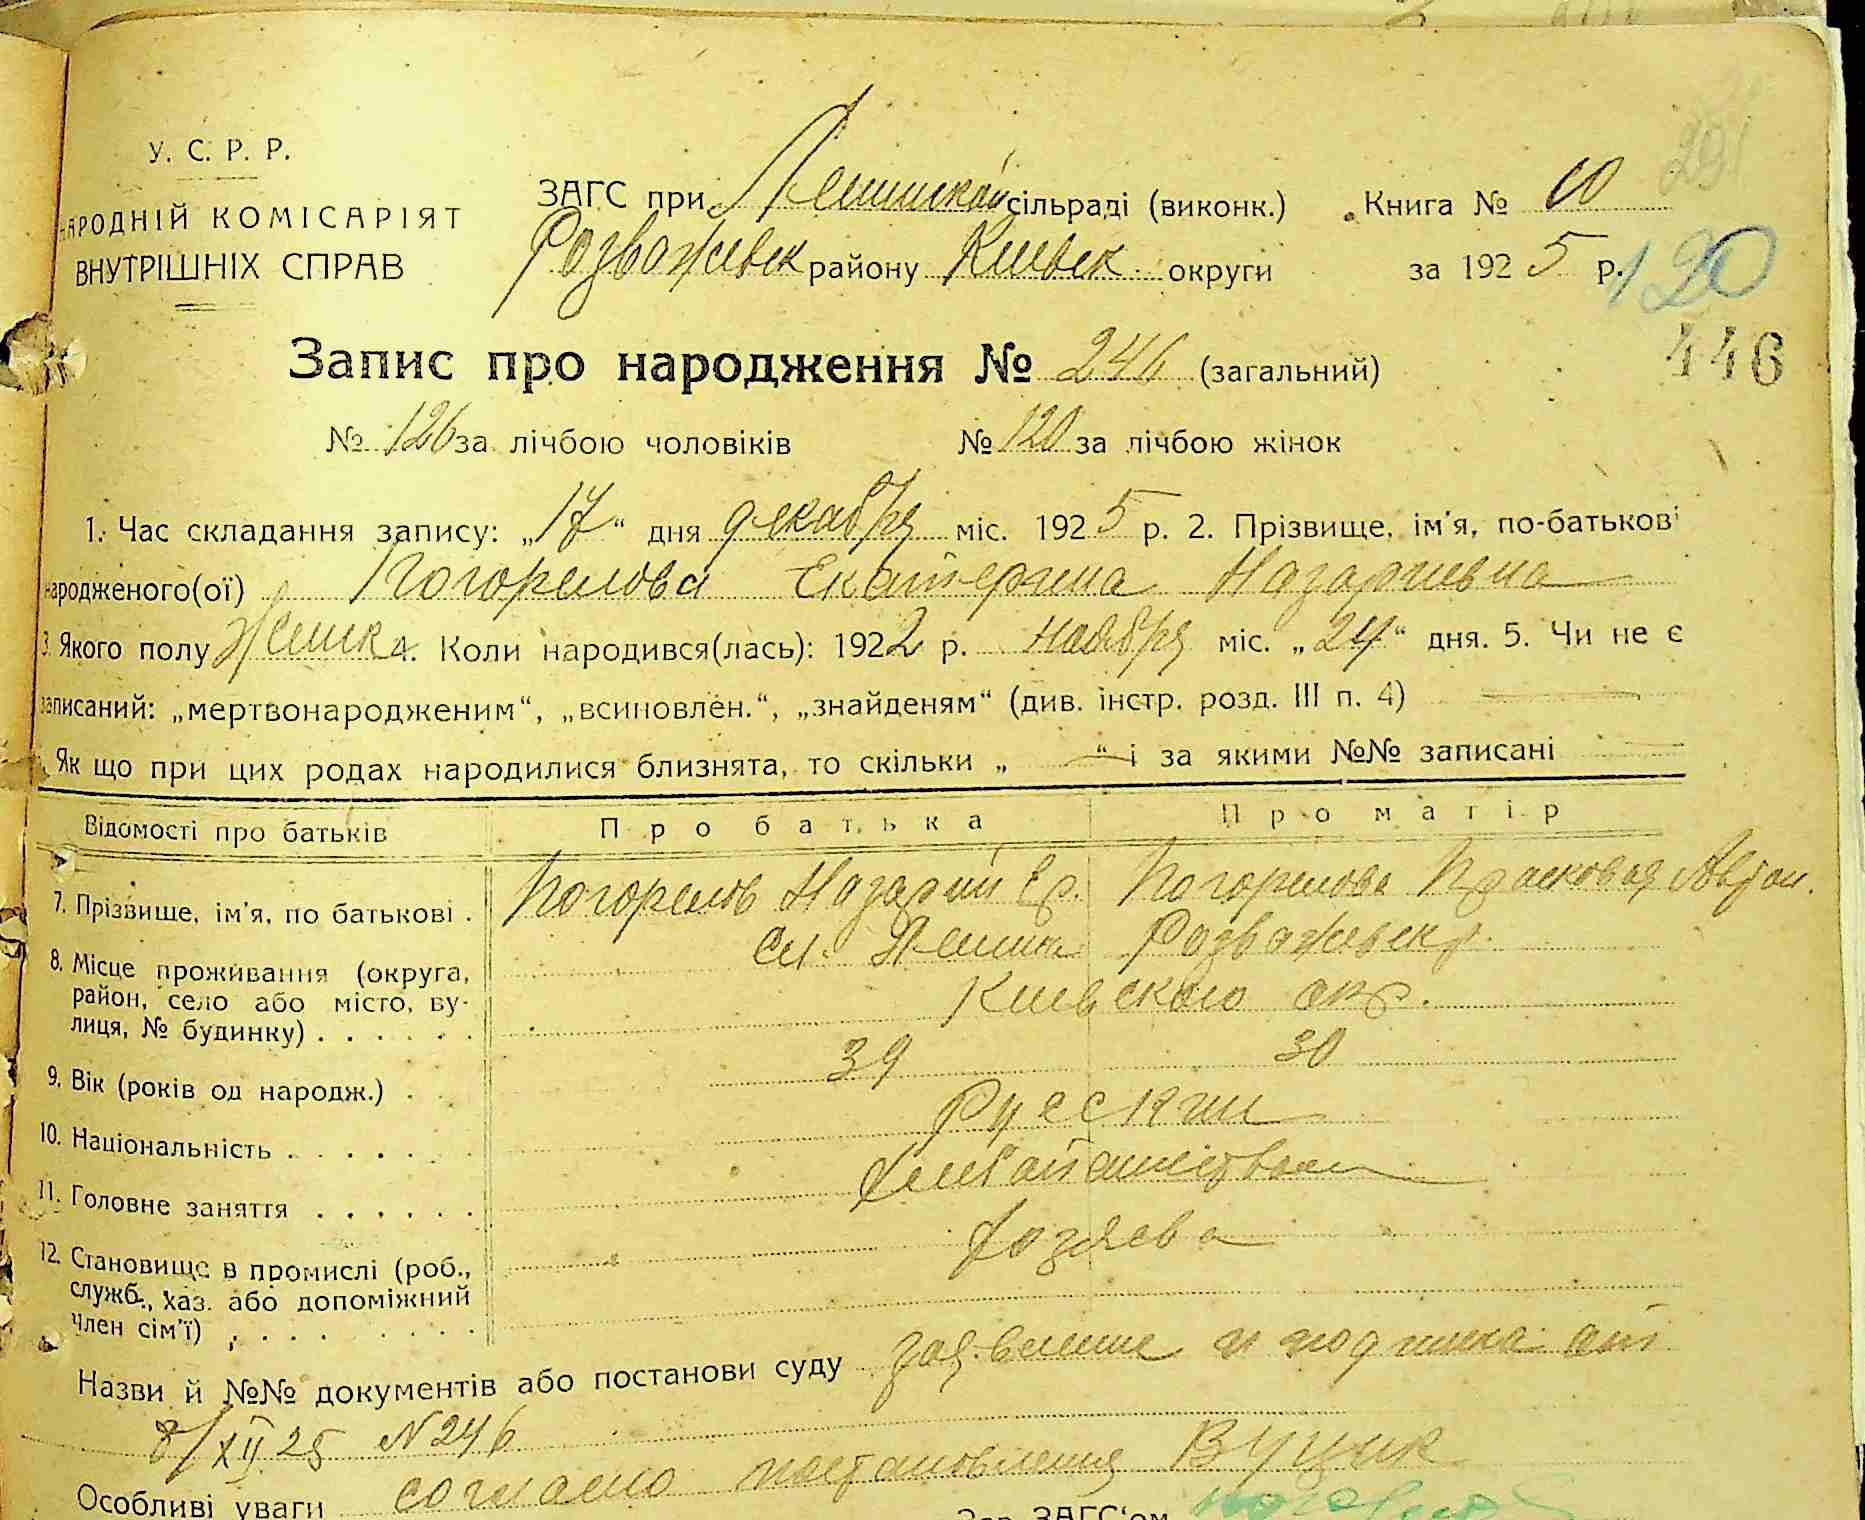 291
У. С. Р. Р.
НАРОДНІЙ КОМІСАРІЯТ
ВНУТРІШНІХ СПРАВ
ЗАГС при сільраді (виконк.) Книга № 10
Розважевск району Киевск округи за 1925 р.
120
446
Запис про народження № 246 (загальний)
№ 126 за лічбою чоловіків № 120 за лічбою жінок
1. Час складання запису: „17“ дня декабря міс. 1925 р. 2. Прізвище, ім'я, по-батькові
народженого(ої) Погорелова Екатерина Назариевна
3. Якого полу Женск 4. Коли народився(лась): 1922 р. ноября міс. „24“ дня. 5. Чи не є
записаний: „мертвонародженим“, „всиновлен.“, „знайденям“ (див. інстр. розд. III п. 4)
Як що при цих родах народилися близнята, то скільки „ “ і за якими №№ записані
Відомості про батьків Про батька Про матір
7. Прізвище, ім'я, по батькові . Погорелов Назарий Ер. Погорелова Прасковия Автон.
8. Місце проживання (округа, район, село або місто, вулиця, № будинку) . . . . . . Розважевск р.
Киевского окр.
9. Вік (років од народж.) . . 39 30
10. Національність . . . . . . . Русския
11. Головне заняття . . . . . . Хлебопашеством
12. Становище в промислі (роб., служб., хаз. або допоміжний член сім'ї) . . . . . . . . . Хозяева
Назви й №№ документів або постанови суду заявление и подписка от
8/XII 25 N 246
Особливі уваги согласно постановления ВУЦИК
Зав. ЗАГС'ом